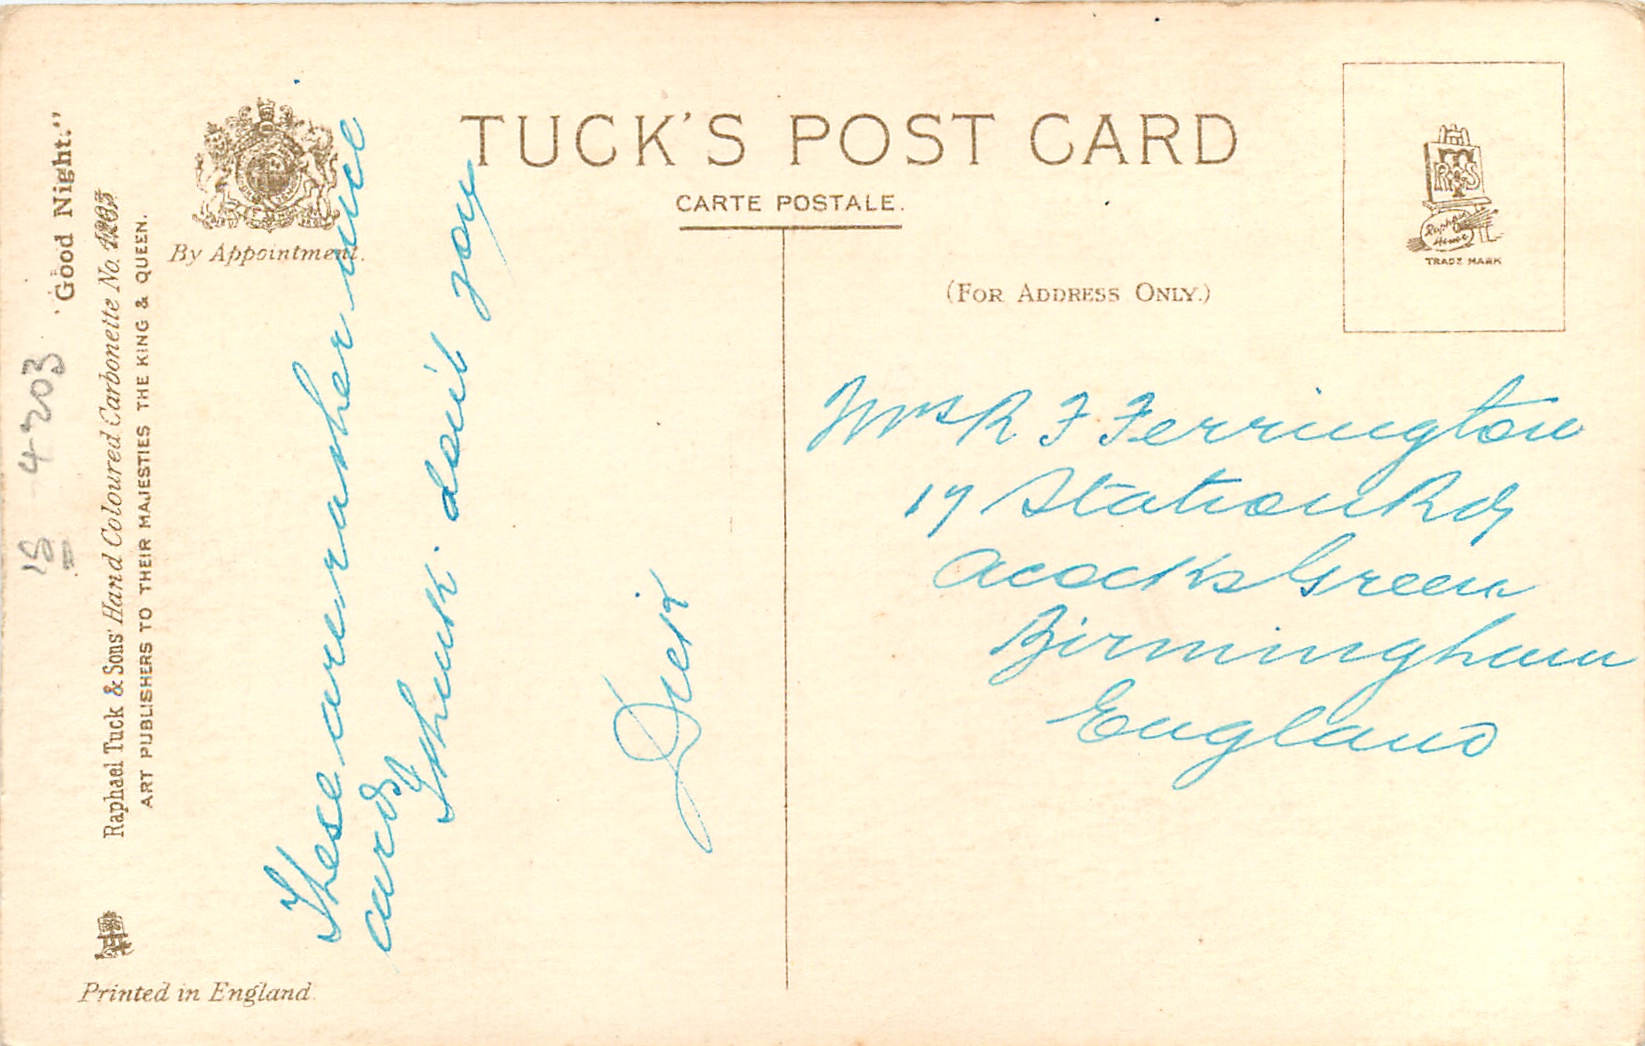 TUCK'S POST CARD
CARTE POSTALE.
(FOR ADDRESS ONLY.)
By Appointment.
TRADE MARK
"Good Night."
Raphael Tuck & Sons' Hand Coloured Carbonette No.
ART PUBLISHERS TO THEIR MAJESTIES THE KING & QUEEN.
Printed in England
4203
These are rather nice
cards
I think. don't you
Dick
Mrs R F Ferrington
17 Station Rd
Acocks Green
Birmingham
England